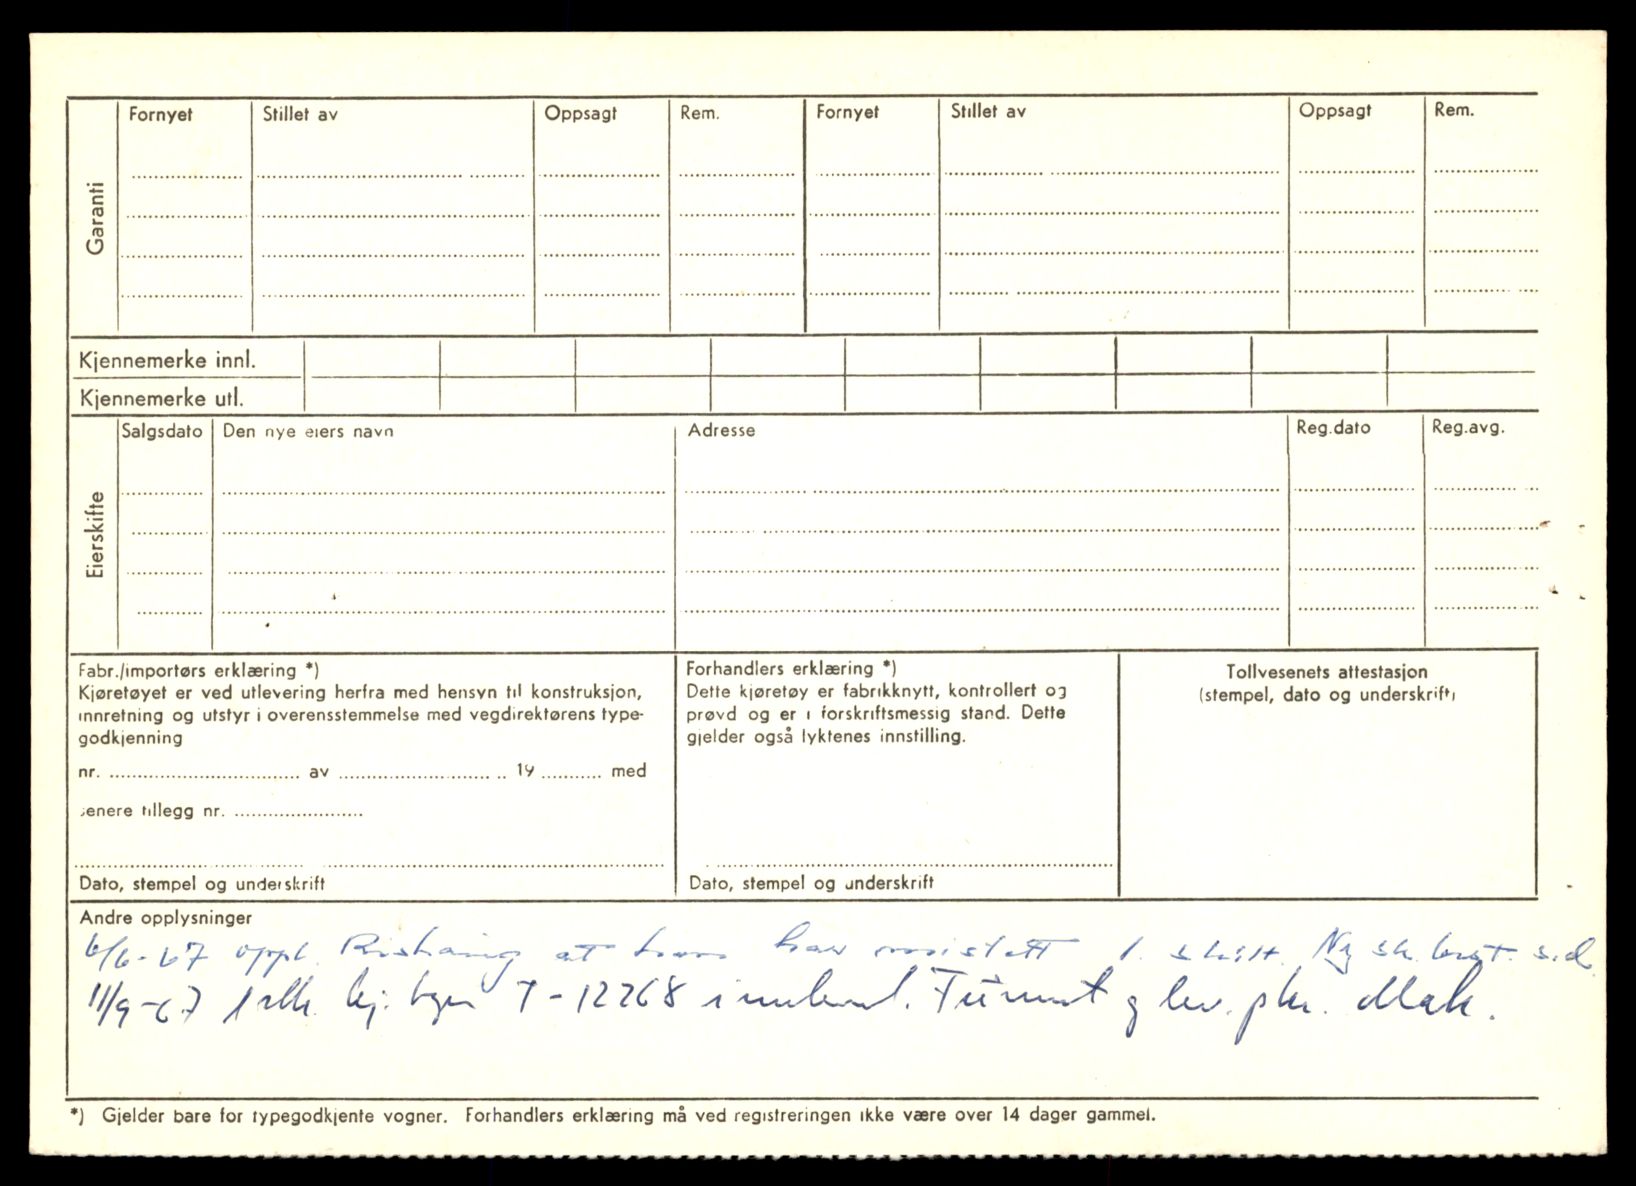 Garanti
Fornyet Stillet av Oppsagt Rem. Fornyet Stillet av Oppsagt Rem.
Kjennemerke innl.
Kjennemerke utl.
Eierskifte
Salgsdato Den nye eiers navn Adresse Reg.dato Reg.avg.
Fabr./importørs erklæring *)
Kjøretøyet er ved utlevering herfra med hensyn til konstruksjon,
innretning og utstyr i overensstemmelse med vegdirektørens type-
godkjenning
nr. av 19 med
senere tillegg nr.
Dato, stempel og underskrift
Forhandlers erklæring *)
Dette kjøretøy er fabrikknytt, kontrollert og
prøvd og er i forskriftsmessig stand. Dette
gjelder også lyktenes innstilling.
Dato, stempel og underskrift
Tollvesenets attestasjon
(stempel, dato og underskrift)
Andre opplysninger
6/6-67 oppl. at han har mistett 1. skilt. Ny sk. best. s.d.
11/9-67 kj. T-12268 g lev. pkr.
*) Gjelder bare for typegodkjente vogner. Forhandlers erklæring må ved registreringen ikke være over 14 dager gammel.